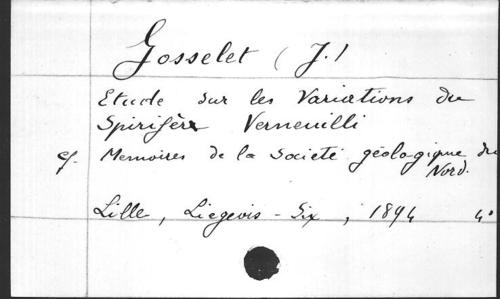 Gosselet (J.)
Etude sur les Variations du
Spirifère Verneuilli
cf. Memoires de la Societé géologique du
Nord.
Lille, Liegeois-Six, 1894 4°